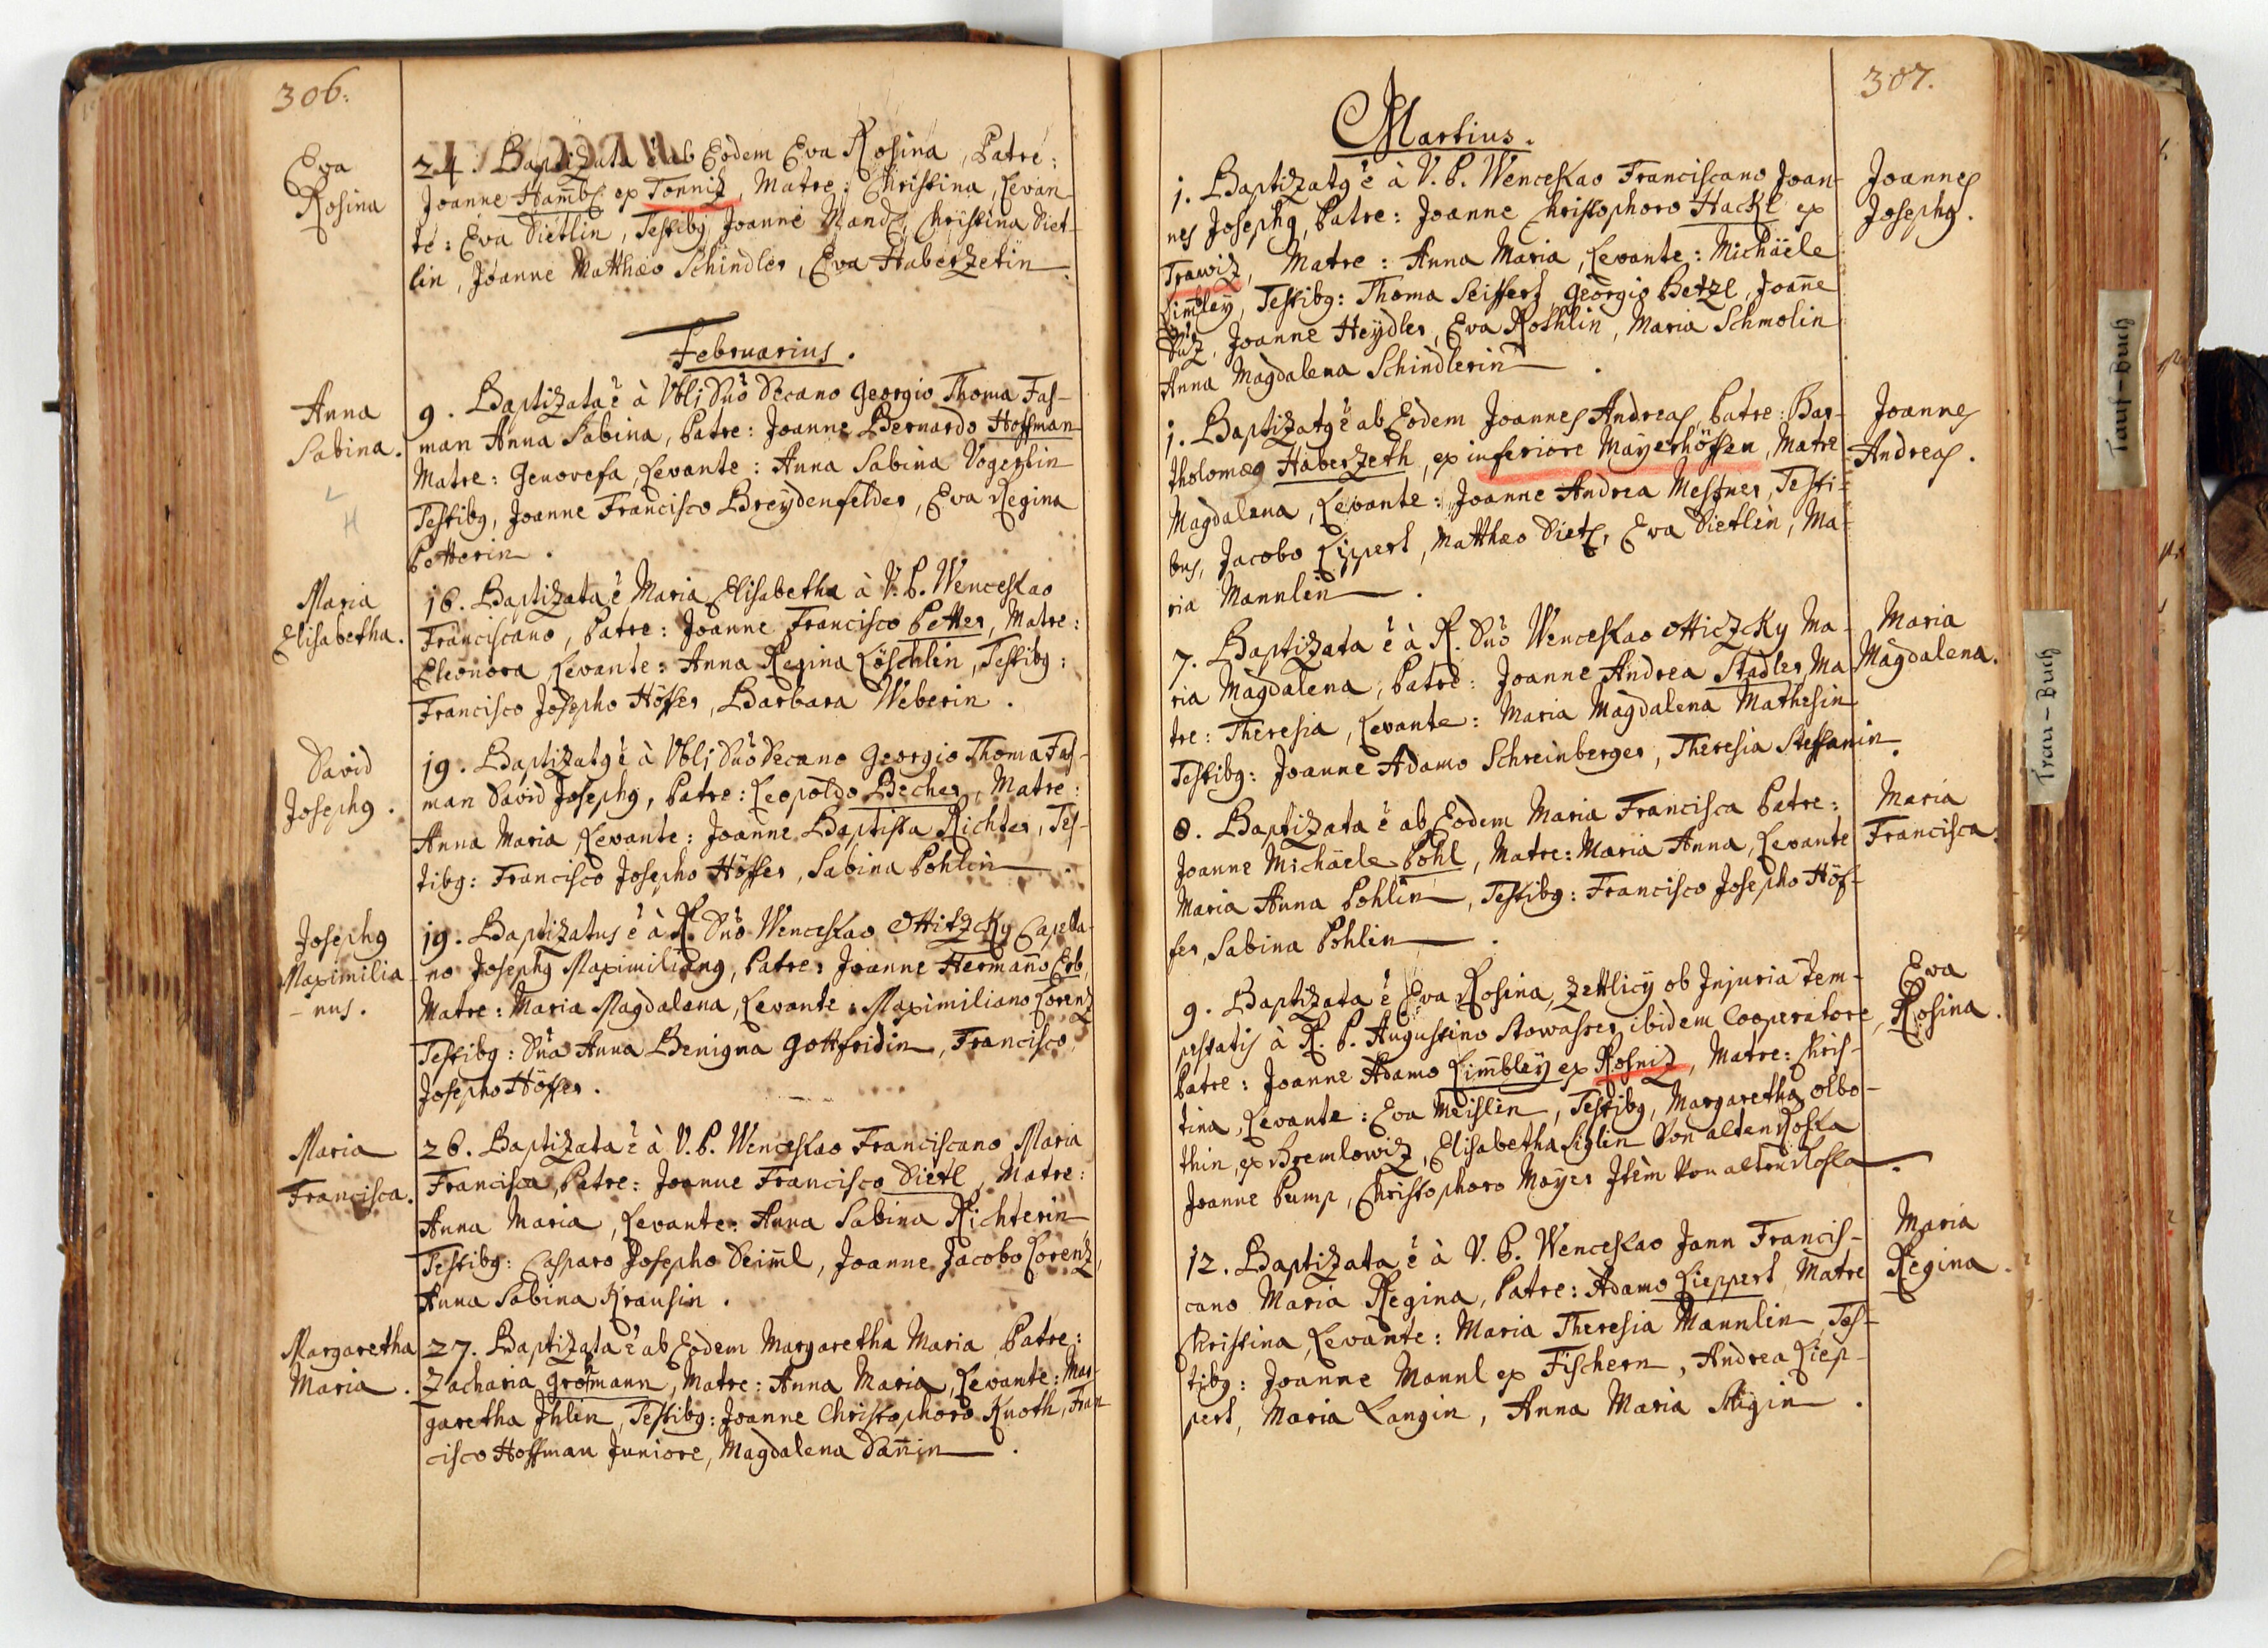 306.
Eva
Rosina
24. Baptizata ẽ ab Eodem Eva Rosina, Patre:
Joanne Ham̄bl ex Tonniz, Matre: Christina, Levan-
te: Eva Dietlin, Testibg Joanne Mandl, Christina Diet-
lin, Joanne Matthæo Schindler, Eva Haberzetin
Februarius.
Anna
Sabina.
9. Baptizata ẽ à Vbli Dn̄o Decano Georgio Thoma Fas-
man Anna Sabina, Patre: Joanne Bernardo Hoffman
Matre: Genovefa, Levante: Anna Sabina Vogerlin
Testibg, Joanne Francisco Breydenfelder, Eva Regina
Petterin.
Maria
Elisabetha.
16. Baptizata ẽ Maria Elisabetha à V. P. Wenceslao
Franciscano, Patre: Joanne Francisco Petter, Matre:
Eleonora, Levante: Anna Regina Löschlin, Testibg:
Francisco Josepho Höffer, Barbara Weberin.
David
Josephg.
19. Baptizatg ẽ à Vbli Dn̄o Decano Georgio Thoma Fas-
man David Josephg, Patre: Leopoldo Becher, Matre:
Anna Maria, Levante: Joanne Baptista Richter, Tes-
tibg: Francisco Josepho Höffer, Sabina Pohlin.
Josephg
Maximilia-
nus.
19. Baptizatus ẽ à R. Dn̄o Wenceslao Ottitzky Capella-
no Josephg Maximiliang, Patre: Joanne Herman̄o Erb,
Matre: Maria Magdalana, Levante: Maximiliano Lorenz
Testibg: Dn̄a Anna Benigna Gottfridin, Francisco
Josepho Höffer.
Maria
Francisca.
26. Baptizata ẽ à V. P. Wenceslao Franciscano Maria
Francisca, Patre: Joanne Francisco Dietl, Matre:
Anna Maria, Levante: Anna Sabina Richterin
Testibg: Casparo Josepho Deim̄l, Joanne Jacobo Lorenz,
Anna Sabina Krausin.
Margaretha
Maria.
27. Baptizata ẽ ab Eodem Margaretha Maria Patre:
Zacharia Grosmann, Matre: Anna Maria, Levante: Mar-
garetha Ihlin, Testibg: Joanne Christophoro Knoth, Fran
cisco Hoffman Juniore, Magdalena Dan̄in.
307.
Martius.
1. Baptizatg ẽ à V. P. Wenceslao Franciscano Joan-
nes Josephg, Patre: Joanne Christophoro Hackl ex
Trawiz, Matre: Anna Maria, Levante: Michäele
Lim̄bley, Testibg: Thoma Seiffert, Georgio Betzl, Joan̄e
Joanne Heydler, Eva Rothlin, Maria Schmolin
Anna Magdalena Schindlerin.
Joannes
Josephg.
1. Baptizatg ẽ ab Eodem Joannes Andreas, Patre: Bar-
tholomæo Haberzeth, ex inferiore Mayerhöffen, Matre
Magdalena, Levante: Joanne Andrea Mestner, Testi-
bus, Jacobo Lippert, Matthæo Dietl, Eva Dietlin, Ma-
ria Mannlin.
Joannes
Andreas.
7. Baptizata ẽ à R. Dn̄o Wenceslao Otticzky Ma-
ria Magdalena, Patre: Joanne Andrea Stadler, Ma-
tre: Theresia, Levante: Maria Magdalena Mathesin
Testibg: Joanne Adamo Schreinberger, Theresia Steffanin.
Maria
Magdalena.
8. Baptizata ẽ ab Eodem Maria Francisca Patre:
Joanne Michäele Pohl, Matre: Maria Anna, Levante
Maria Anna Pohlin, Testibg: Francisco Josepho Höf-
fer, Sabina Pohlin.
Maria
Francisca.
9. Baptizata ẽ Eva Rosina, Zettlicij ob Injuria tem-
pestatis à R. P. Augustino Stowasser ibidem Cooperatore,
Patre: Joanne Adamo Lim̄bley ex Rosniz, Matre: Chris-
tina, Levante: Eva Meislin, Testibg, Margaretha Olbo-
thin, ex Premlowiz, Elisabetha Siglin Von alten Rosla
Joanne Pump, Christophoro Mayer Item Von alten Rosla.
Eva
Rosina.
12. Baptizata ẽ à V. P. Wenceslao Jann Francis-
cano Maria Regina, Patre: Adamo Lieppert, Matre
Christina, Levante: Maria Theresia Mannlin, Tes-
tibg: Joanne Mannl ex Fischern, Andrea Liep-
pert, Maria Langin, Anna Maria.
Maria
Regina.
Tauf-Buch
Trau-Buch